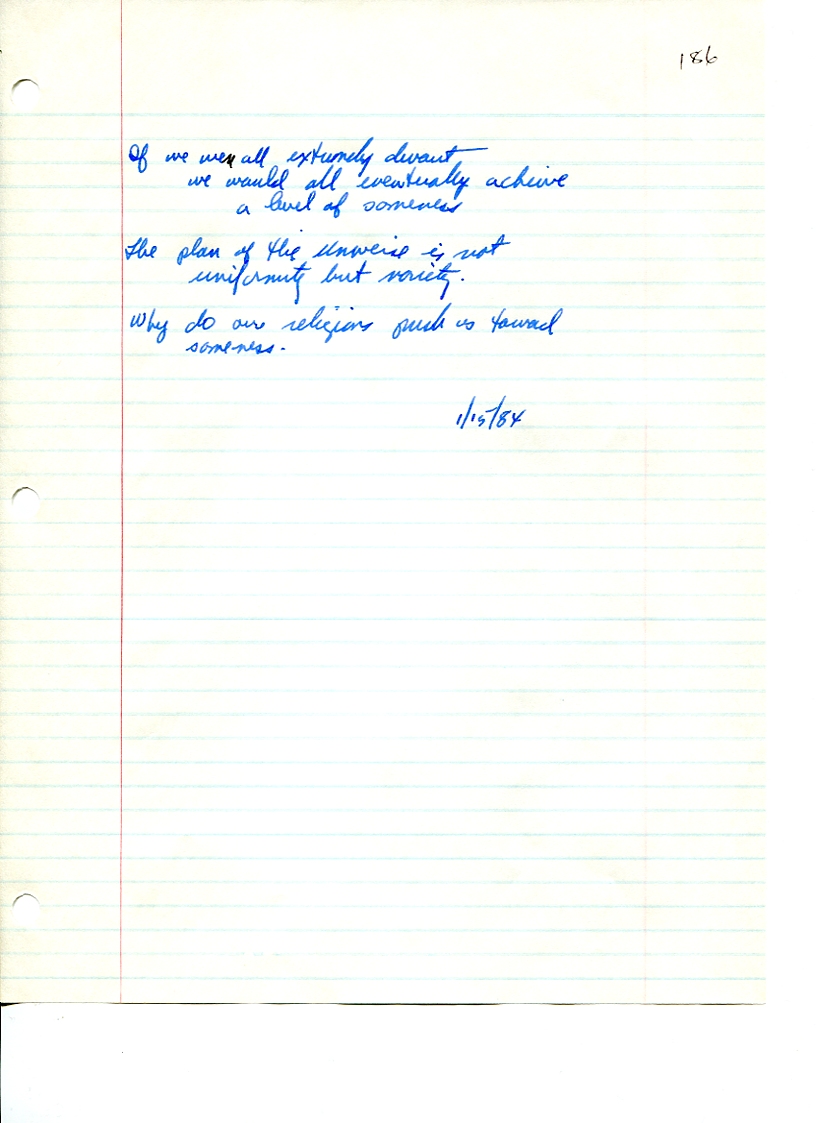 186
If we were all extremely devout
we would all eventually achieve
a level of sameness
The plan of the universe is not
uniformity but variety.
Why do our religions push us toward
sameness.
1/15/84